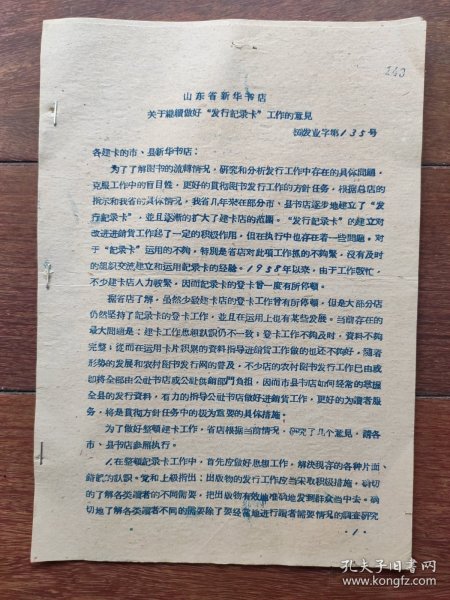 243
山东省新华书店
关于继續做好“发行紀录卡”工作的意見
颁发业字第135号
各建卡的市、县新华书店：
为了了解图书的流轉情况，研究和分析发行工作中存在的具体問題，
克服工作中的盲目性，更好的貫彻图书发行工作的方針任务，根据总店的
指示和我省的具体情况，我省几年来在部分市、县书店逐步地建立了“发
行紀录卡”，並且逐漸的扩大了建卡店的范圍。“发行紀录卡”的建立对
改进进銷貨工作起了一定的积极作用，但在执行中也存在着一些問題。对
于“紀录卡”运用的不夠，特别是省店对此項工作抓的不夠緊，沒有及时
的組织交流建立和运用記录卡的经驗。1958年以來，由于工作繁忙，
不少建卡店人力較紧，因而紀录卡的登卡曾一度有所停頓。
据省店了解，虽然少数建卡店的登卡工作曾有所停頓，但是大部分店
仍然坚持了紀录卡的登卡工作，並且在运用上也有某些发展。当前存在的
最大問題是：建卡工作思想認识仍不一致；登卡工作不夠及时，資料不夠
完整；從而在运用卡片积累的資料指导进銷貨工作做的也还不夠好，随着
形势的发展和农村发行网的普及，不少店的农村图书发行工作巳由或
即将全部由公社书店或公社供銷部門負担，因而市县书店如何经常的掌握
全县的发行資料，有力的指导公社书店做好进銷貨工作，更好的为讀者服
务，将是貫彻方針任务中的极为重要的具体措施。
为了做好整頓建卡工作，省店根据当前情况，研究了几个意見，請各
市、县书店参照执行。
1.在整頓紀录卡工作中，首先应做好思想工作，解决現存的各种片面、
的認识。党和上級指出：出版物的发行工作应当采取积极措施，确切
的了解各类讀者的不同需要，把出版物有效地准确地发到群众当中去。确
切地了解各类讀者不同的需要除了要经常地进行讀者需要情况的調查研究
·1·
孔夫子旧书网
book.kongfz.com